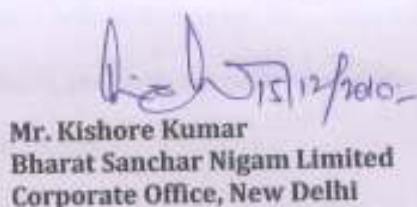 15/12/2010
Mr. Kishore Kumar
Bharat Sanchar Nigam Limited
Corporate Office, New Delhi